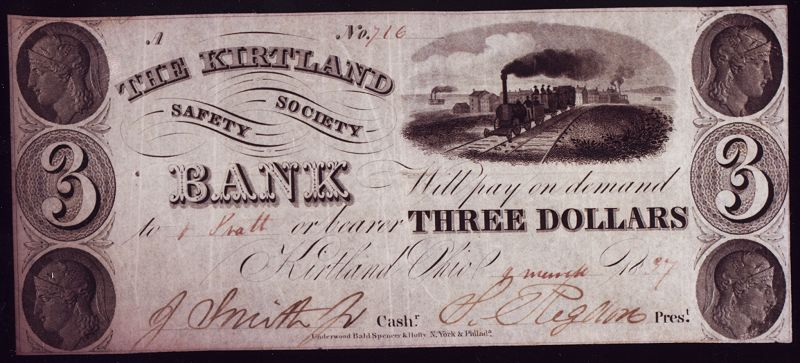 A No. 716
THE KIRTLAND
SAFETY SOCIETY
BANK
3
3
Will pay on demand
to Pratt or bearer THREE DOLLARS
Kirtland Ohio 9 March 1837
J Smith Jr Cash.r S. Rigdon Pres.t
Underwood Bald Spencer & Hufty N. York & Philad.a